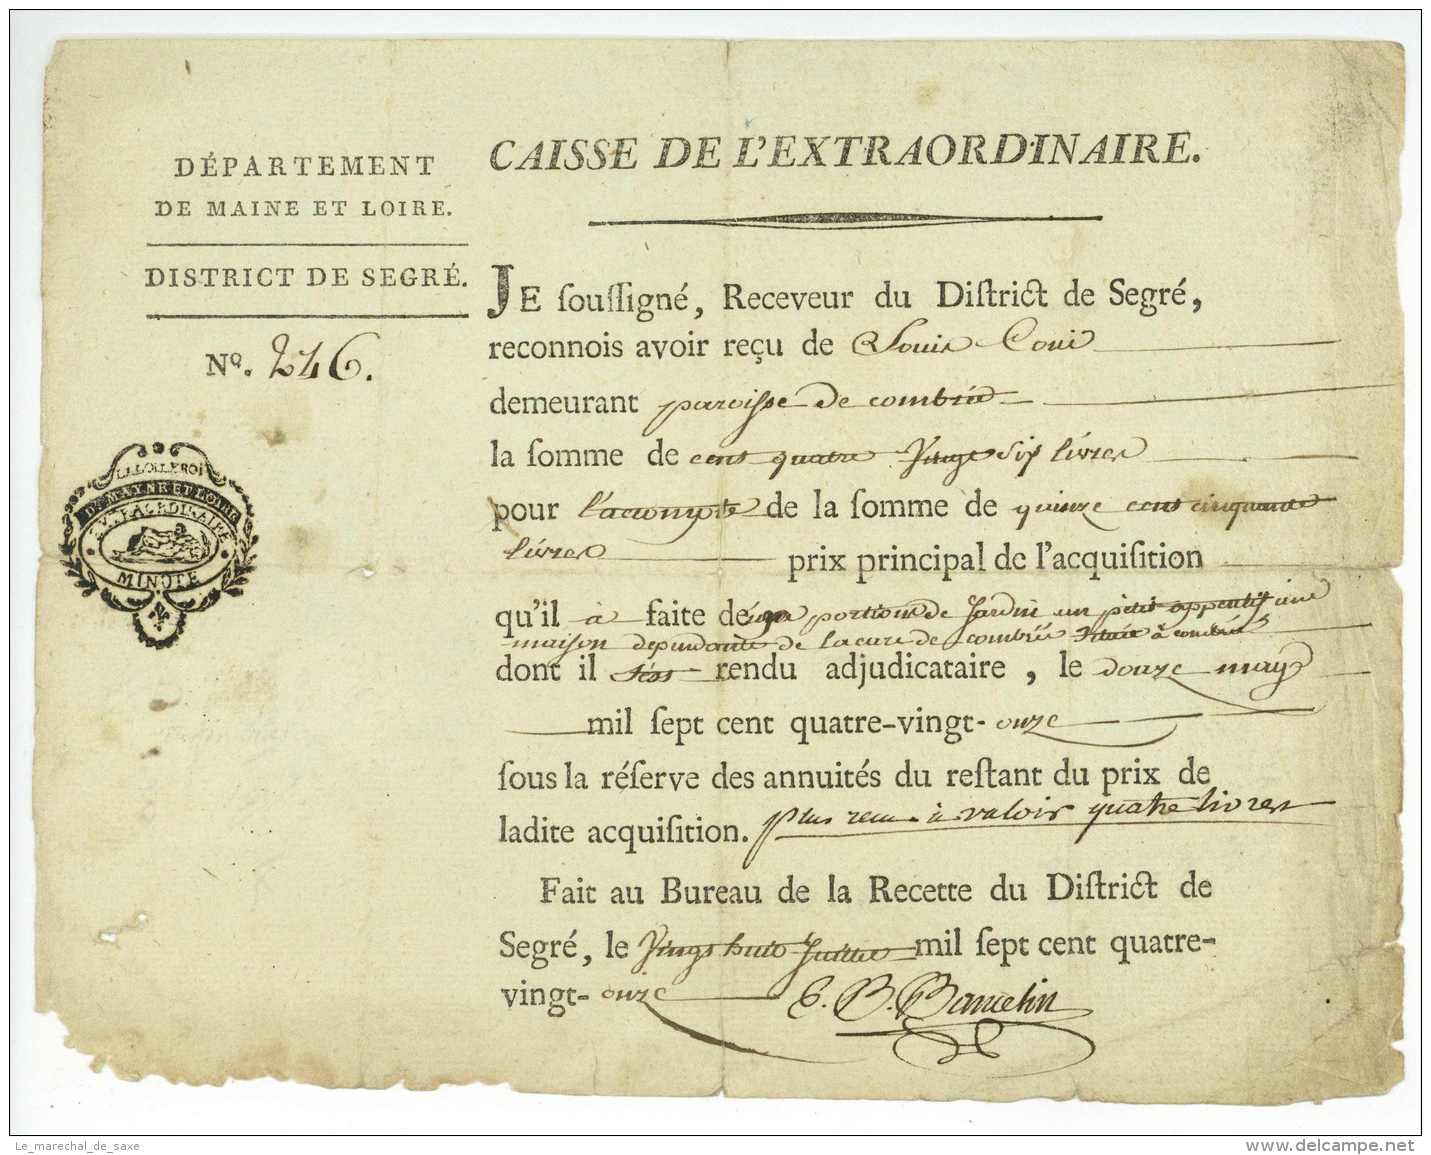 CAISSE DE L'EXTRAORDINAIRE.
DÉPARTEMENT
DE MAINE ET LOIRE.
DISTRICT DE SEGRÉ.
Nº. 246.
LA LOI LE ROI
DT. MAYNE ET LOIRE
EXTRAORDINAIRE
MINUTE
JE souſſigné, Receveur du Diſtrict de Segré,
reconnois avoir reçu de Louis Coué
demeurant paroisse de combrée
la ſomme de cent quatre Vingt Six livres
pour l'acompte de la ſomme de quinze cent cinquante
livres prix principal de l'acquiſition
qu'il a faite de portion de Jardin un petit appentif une
maison dependante de la cure de combrée située à combrée
dont il s'est rendu adjudicataire, le douze may
mil ſept cent quatre-vingt-onze
ſous la réſerve des annuités du reſtant du prix de
ladite acquiſition. plus recu à valoir quatre livres
Fait au Bureau de la Recette du Diſtrict de
Segré, le Vingt huit Juillet mil ſept cent quatre-
vingt-onze
Le_marechal_de_saxe
delcampe.net